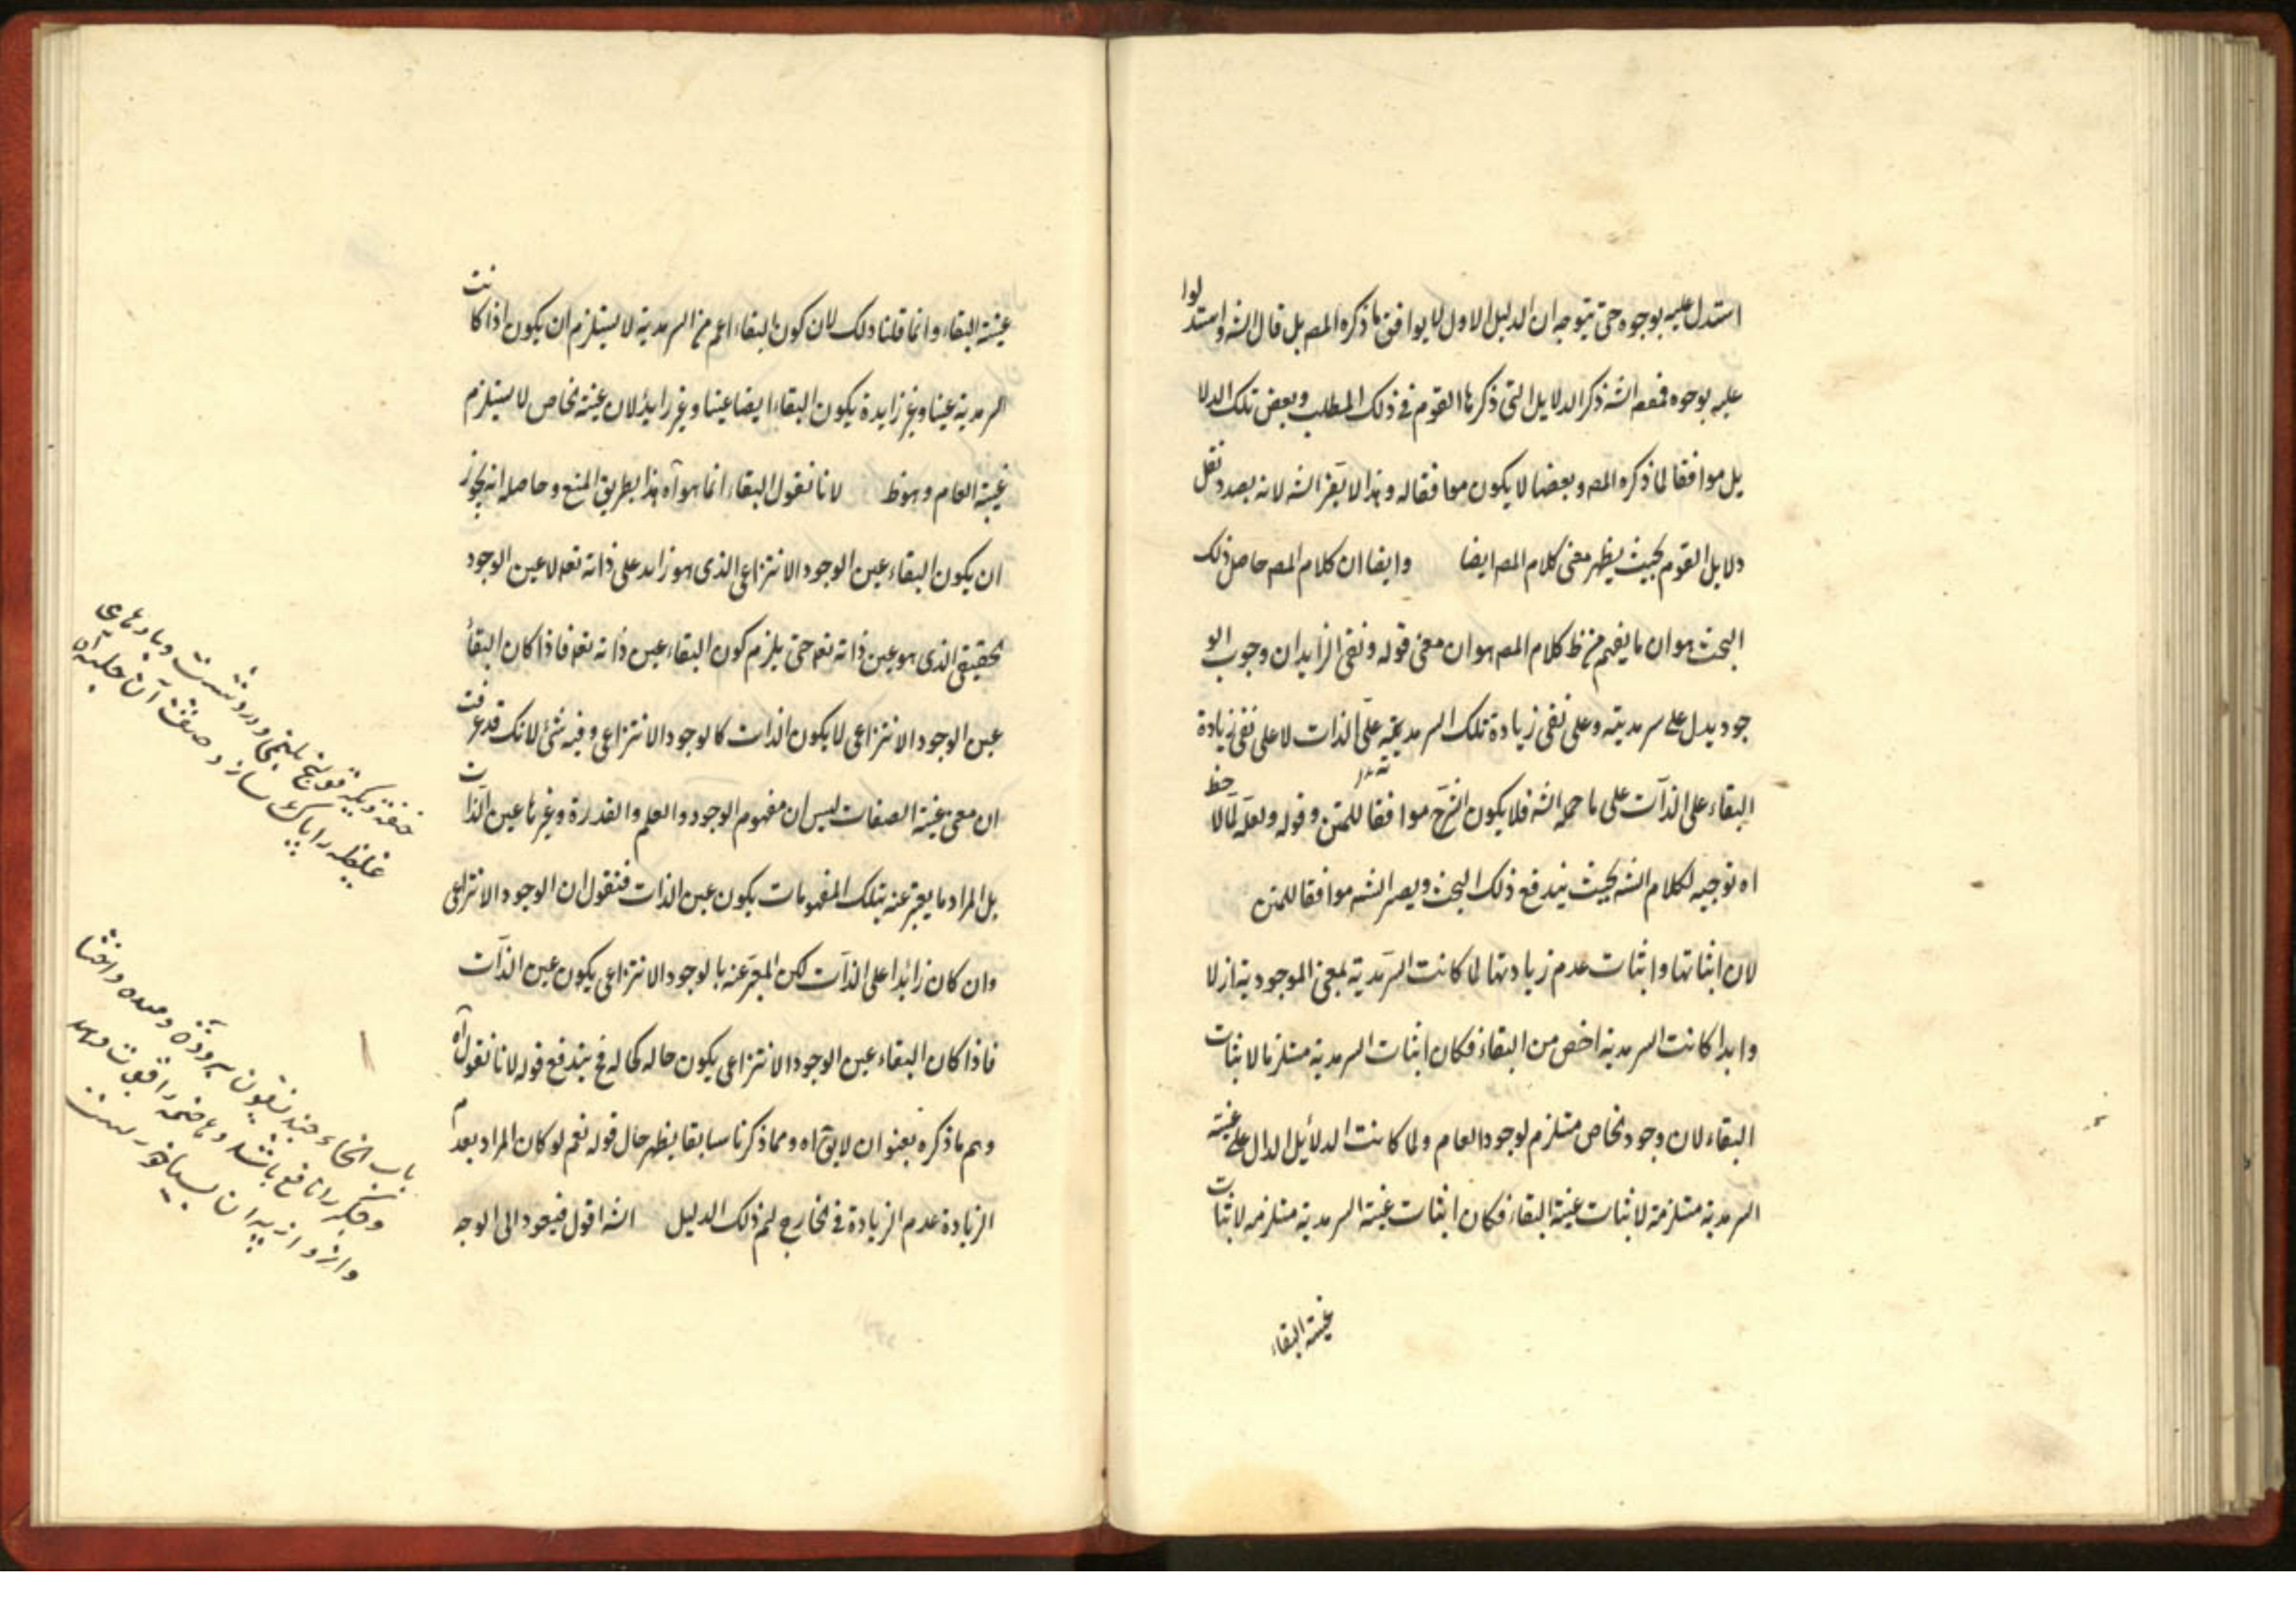 استدل عليه بوجوه حتى يتوجه ان الدليل الاول لا يوافق ما ذكره المصـ بل قال الشـ واستدلوا
عليه بوجوه فمعه الشـ ذكر الدلايل التى ذكرها القوم فى ذلك المطلب وبعض تلك الدلا
يل موافقا لما ذكره المصـ وبعضها لا يكون موافقا له وهذا لا يضر الشـ لانه بصدد نقل
دلايل القوم بحيث يظهر معنى كلام المصـ ايضا وايضا ان كلام المصـ حاصل ذلك
البحث هو ان ما يفهم من ظ كلام المصـ هو ان معنى قوله ونفى الزايد ان وجوب الو
جود يدل على سرمديته وعلى نفى زيادة تلك السرمدية على الذات لا على نفى زيادة
البقاء على الذات على ما حمله الشـ فلا يكون الشرح موافقا للمتن وقوله ولعله لما لاحظ
اه توجيه لكلام الشـ بحيث يندفع ذلك البحث ويصير الشـ موافقا للمتن
لان اثباتها واثبات عدم زيادتها لما كانت السرمدية بمعنى الموجودية ازلا
وابدا كانت السرمدية اخص من البقاء فكان اثبات السرمدية مستلزما لاثبات
البقاء لان وجود الخاص مستلزم لوجود العام ولما كانت الدلائل الدال على عينية
السرمدية مستلزمة لاثبات عينية البقاء فكان اثبات عينية السرمدية مستلزمه لاثبات
عينية البقاء
عينية البقاء وانما قلنا ذلك لان كون البقاء اعم من السرمدية لا يستلزم ان يكون اذا كانت
السرمدية عينا وغير زايدة يكون البقاء ايضا عينا وغير زايد لان عينية الخاص لا يستلزم
عينية العام وهو ظ لانا نقول البقاء انما هو آه هذا بطريق المنع وحاصله انه يجوز
ان يكون البقاء عين الوجود الانتزاعى الذى هو زايد على ذاته تعه لا عين الوجود
الحقيقى الذى هو عين ذاته تعه حتى يلزم كون البقاء عين ذاته تعه فاذا كان البقاء
عين الوجود الانتزاعى لا يكون الذات كالوجود الانتزاعى وفيه شئ لانك قد عرفت
ان معنى عينية الصفات ليس ان مفهوم الوجود والعلم والقدرة وغيرها عين الذات
بل المراد ما يعبر عنه بتلك المفهومات يكون عين الذات فنقول ان الوجود الانتزاعى
وان كان زائدا على الذات لكن المعبر عنه بالوجود الانتزاعى يكون عين الذات
فاذا كان البقاء عين الوجود الانتزاعى يكون حاله كحاله فح يندفع قوله لانا نقول آه
وهم ما ذكره بعنوان لايق آه ومما ذكرنا سابقا يظهر حال قوله نعم لو كان المراد بعدم
الزيادة عدم الزيادة فى الخارج لم ذلك الدليل الشـ اقول فيعود الى الوجه
غليظه را پاك سازد
باب انحاء
وجكر را نافع باشد وهاضمه را قوت